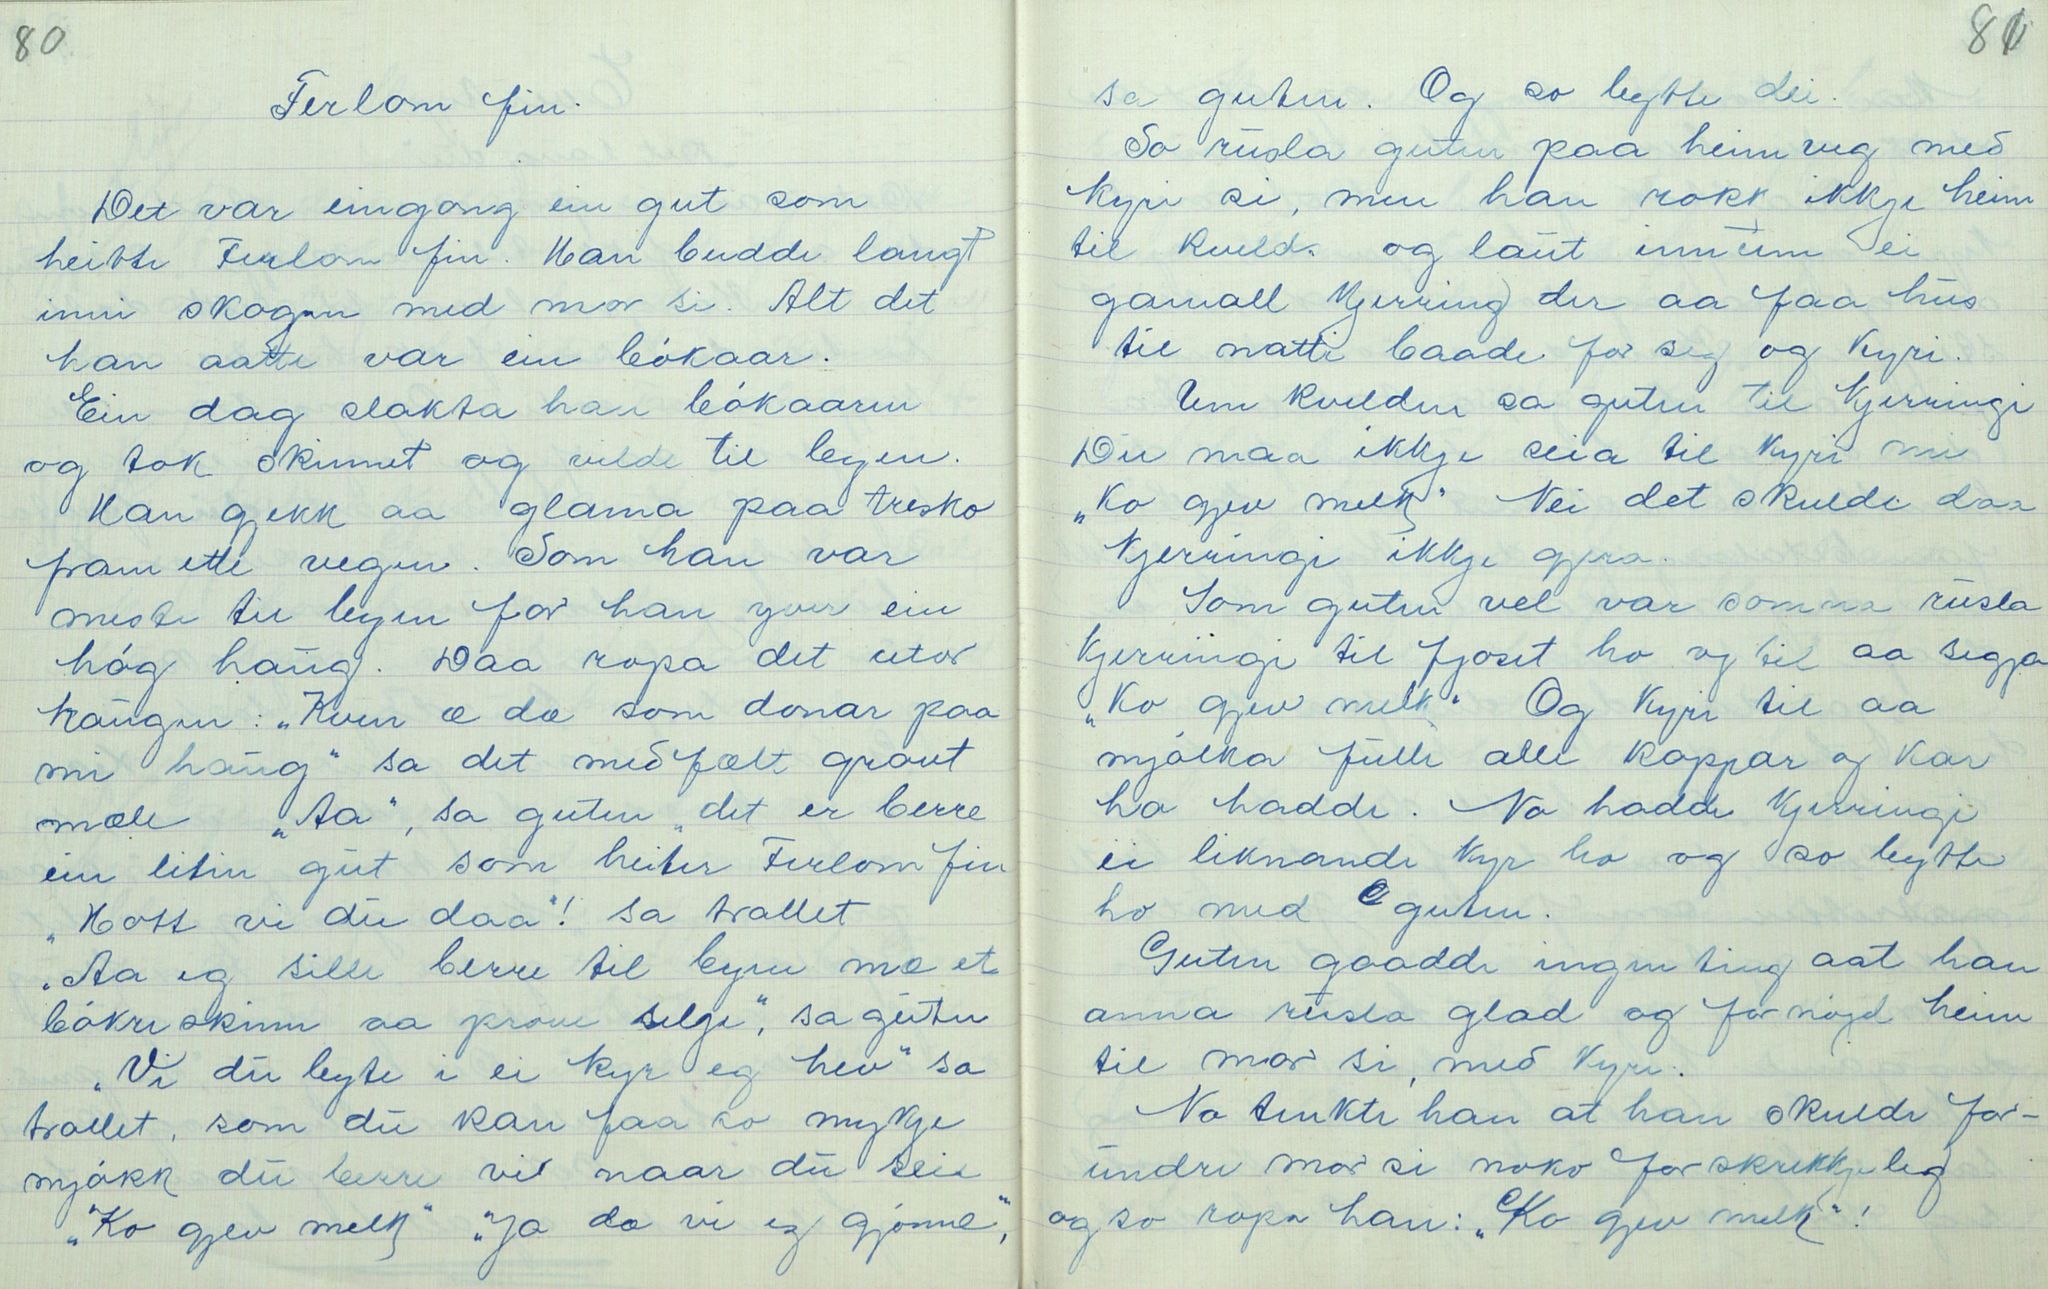 80
Ferlom fin.
Det var eingong ein gut som
heitte Ferlom fin. Han budde langt
inni skogen med mor si. Alt det
han aatte var ein bókaar.
Ein dag slakta han bókaaren
og tok skinnet og vilde til byen.
Han gjekk aa glama paa tresko
fram ette vegen. Som han var
meste til byen for han yver ein
hóg haug. Daa ropa det utor
haugen: "Kven æ dæ som donar paa
mi haug" sa det med fælt graut
mæle "Aa", sa guten "det er berre
ein liten gut som heiter Ferlom fin
"Kott vi du daa"! sa trollet
"Aa eg sille berre til byen mæ et
bókreskinn aa prøve selge", sa guten
"Vi du byte i ei kyr eg hev" sa
trollet, som du kan faa so mykje
mjókk du berre vil naar du seie
"Ko gjev melk" "Ja dæ vi eg gjónne",
81
sa guten. Og so bytte dei.
So rusla guten paa heimveg med
kyri si, men han rokk ikkje heim
til kvelds og laut innum ei
gamall kjerring der aa faa hus
til natti baade for seg og kyri.
Um kvelden sa guten til kjerringi
Du maa ikkje seia til kyri mi
"Ko gjev melk" Nei det skulde daa
kjerringi ikkje gjera.
Som guten vel var somna rusla
kjerringi til fjoset ho og til aa segja
"Ko gjev melk" Og kyri til aa
mjólka fulle alle koppar og kar
ho hadde. No hadde kjerringi
ei liknande kyr ho og so bytte
ho med guten.
Guten gaadde ingen ting aat han
anna rusla glad og fornójd heim
til mor si, med kyri.
No tenkte han at han skulde for-
undre mor si noko forskrekkjeleg
og so ropa han: "Ko gjev melk"!